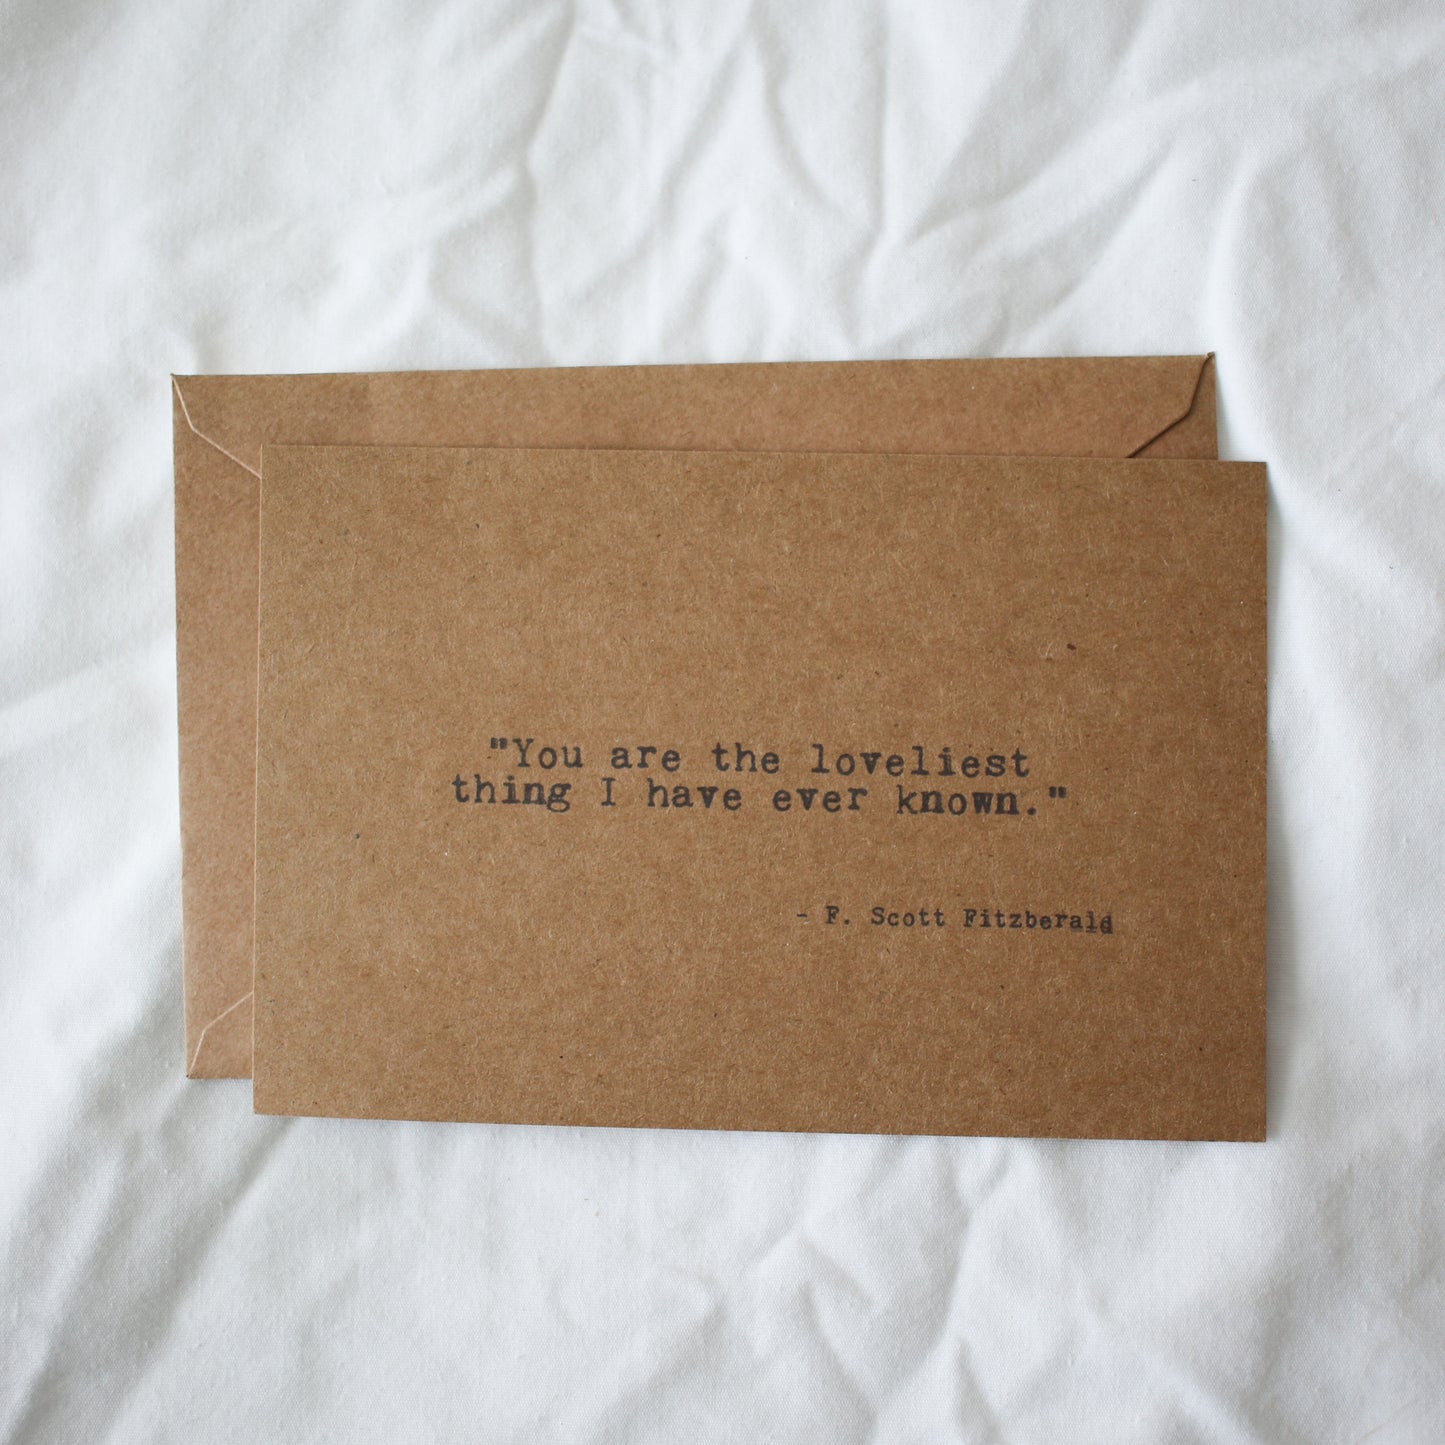 "You are the loveliest
thing I have ever known."
- F. Scott Fitzberald